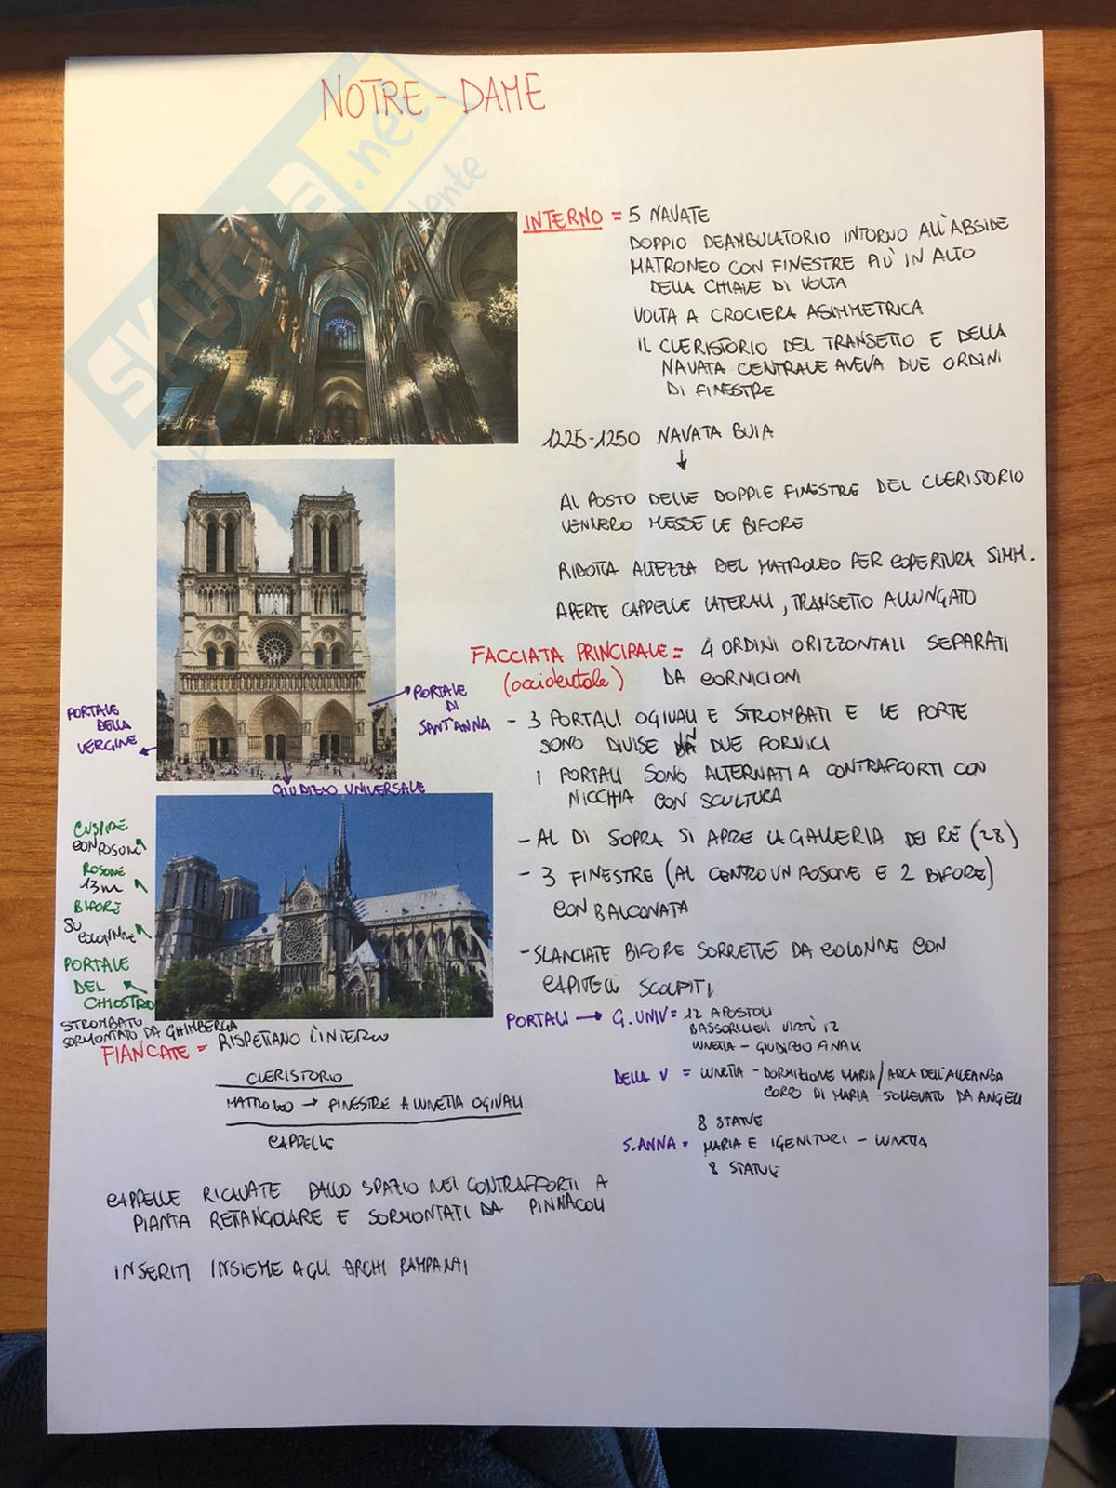 NOTRE-DAME
SKUOLA.net
INTERNO = 5 NAVATE
DOPPIO DEAMBULATORIO INTORNO ALL'ABSIDE
MATRONEO CON FINESTRE PIÙ IN ALTO
DELLA CHIAVE DI VOLTA
VOLTA A CROCIERA ASIMMETRICA
IL CLERISTORIO DEL TRANSETTO E DELLA
NAVATA CENTRALE AVEVA DUE ORDINI
DI FINESTRE
1225-1250 NAVATA BUIA
↓
AL POSTO DELLE DOPPIE FINESTRE DEL CLERISTORIO
VENNERO MESSE LE BIFORE
RIDOTTA ALTEZZA DEL MATRONEO PER COPERTURA SIMM.
APERTE CAPPELLE LATERALI, TRANSETTO ALLUNGATO
FACCIATA PRINCIPALE = 4 ORDINI ORIZZONTALI SEPARATI
(occidentale) DA CORNICIONI
PORTALE DI SANT'ANNA
PORTALE DELLA VERGINE
GIUDIZIO UNIVERSALE
- 3 PORTALI OGIVALI E STROMBATI E LE PORTE
SONO DIVISE IN DUE FORNICI
I PORTALI SONO ALTERNATI A CONTRAFFORTI CON
NICCHIA CON SCULTURA
- AL DI SOPRA SI APRE LA GALLERIA DEI RE (28)
- 3 FINESTRE (AL CENTRO UN ROSONE E 2 BIFORE)
CON BALCONATA
- SLANCIATE BIFORE SORRETTE DA COLONNE CON
CAPITELLI SCOLPITI
CUSPIDE
CON ROSONE
ROSONE
13m
BIFORE
SU
COLONNE
PORTALE
DEL
CHIOSTRO
STROMBATO
SORMONTATO DA GHIMBERGA
FIANCATE = RISPETTANO L'INTERNO
CLERISTORIO
MATRONEO → FINESTRE A LUNETTA OGIVALI
CAPPELLE
PORTALI → G. UNIV = 12 APOSTOLI
BASSORILIEVI VIRTÙ 12
LUNETTA - GIUDIZIO FINALE
DELLA V = LUNETTA - DORMIZIONE MARIA/ARCA DELL'ALLEANZA
CORPO DI MARIA SOLLEVATO DA ANGELI
8 STATUE
S. ANNA = MARIA E I GENITORI - LUNETTA
8 STATUE
CAPPELLE RICAVATE DALLO SPAZIO NEI CONTRAFFORTI A
PIANTA RETTANGOLARE E SORMONTATI DA PINNACOLI
INSERITI INSIEME AGLI ARCHI RAMPANTI